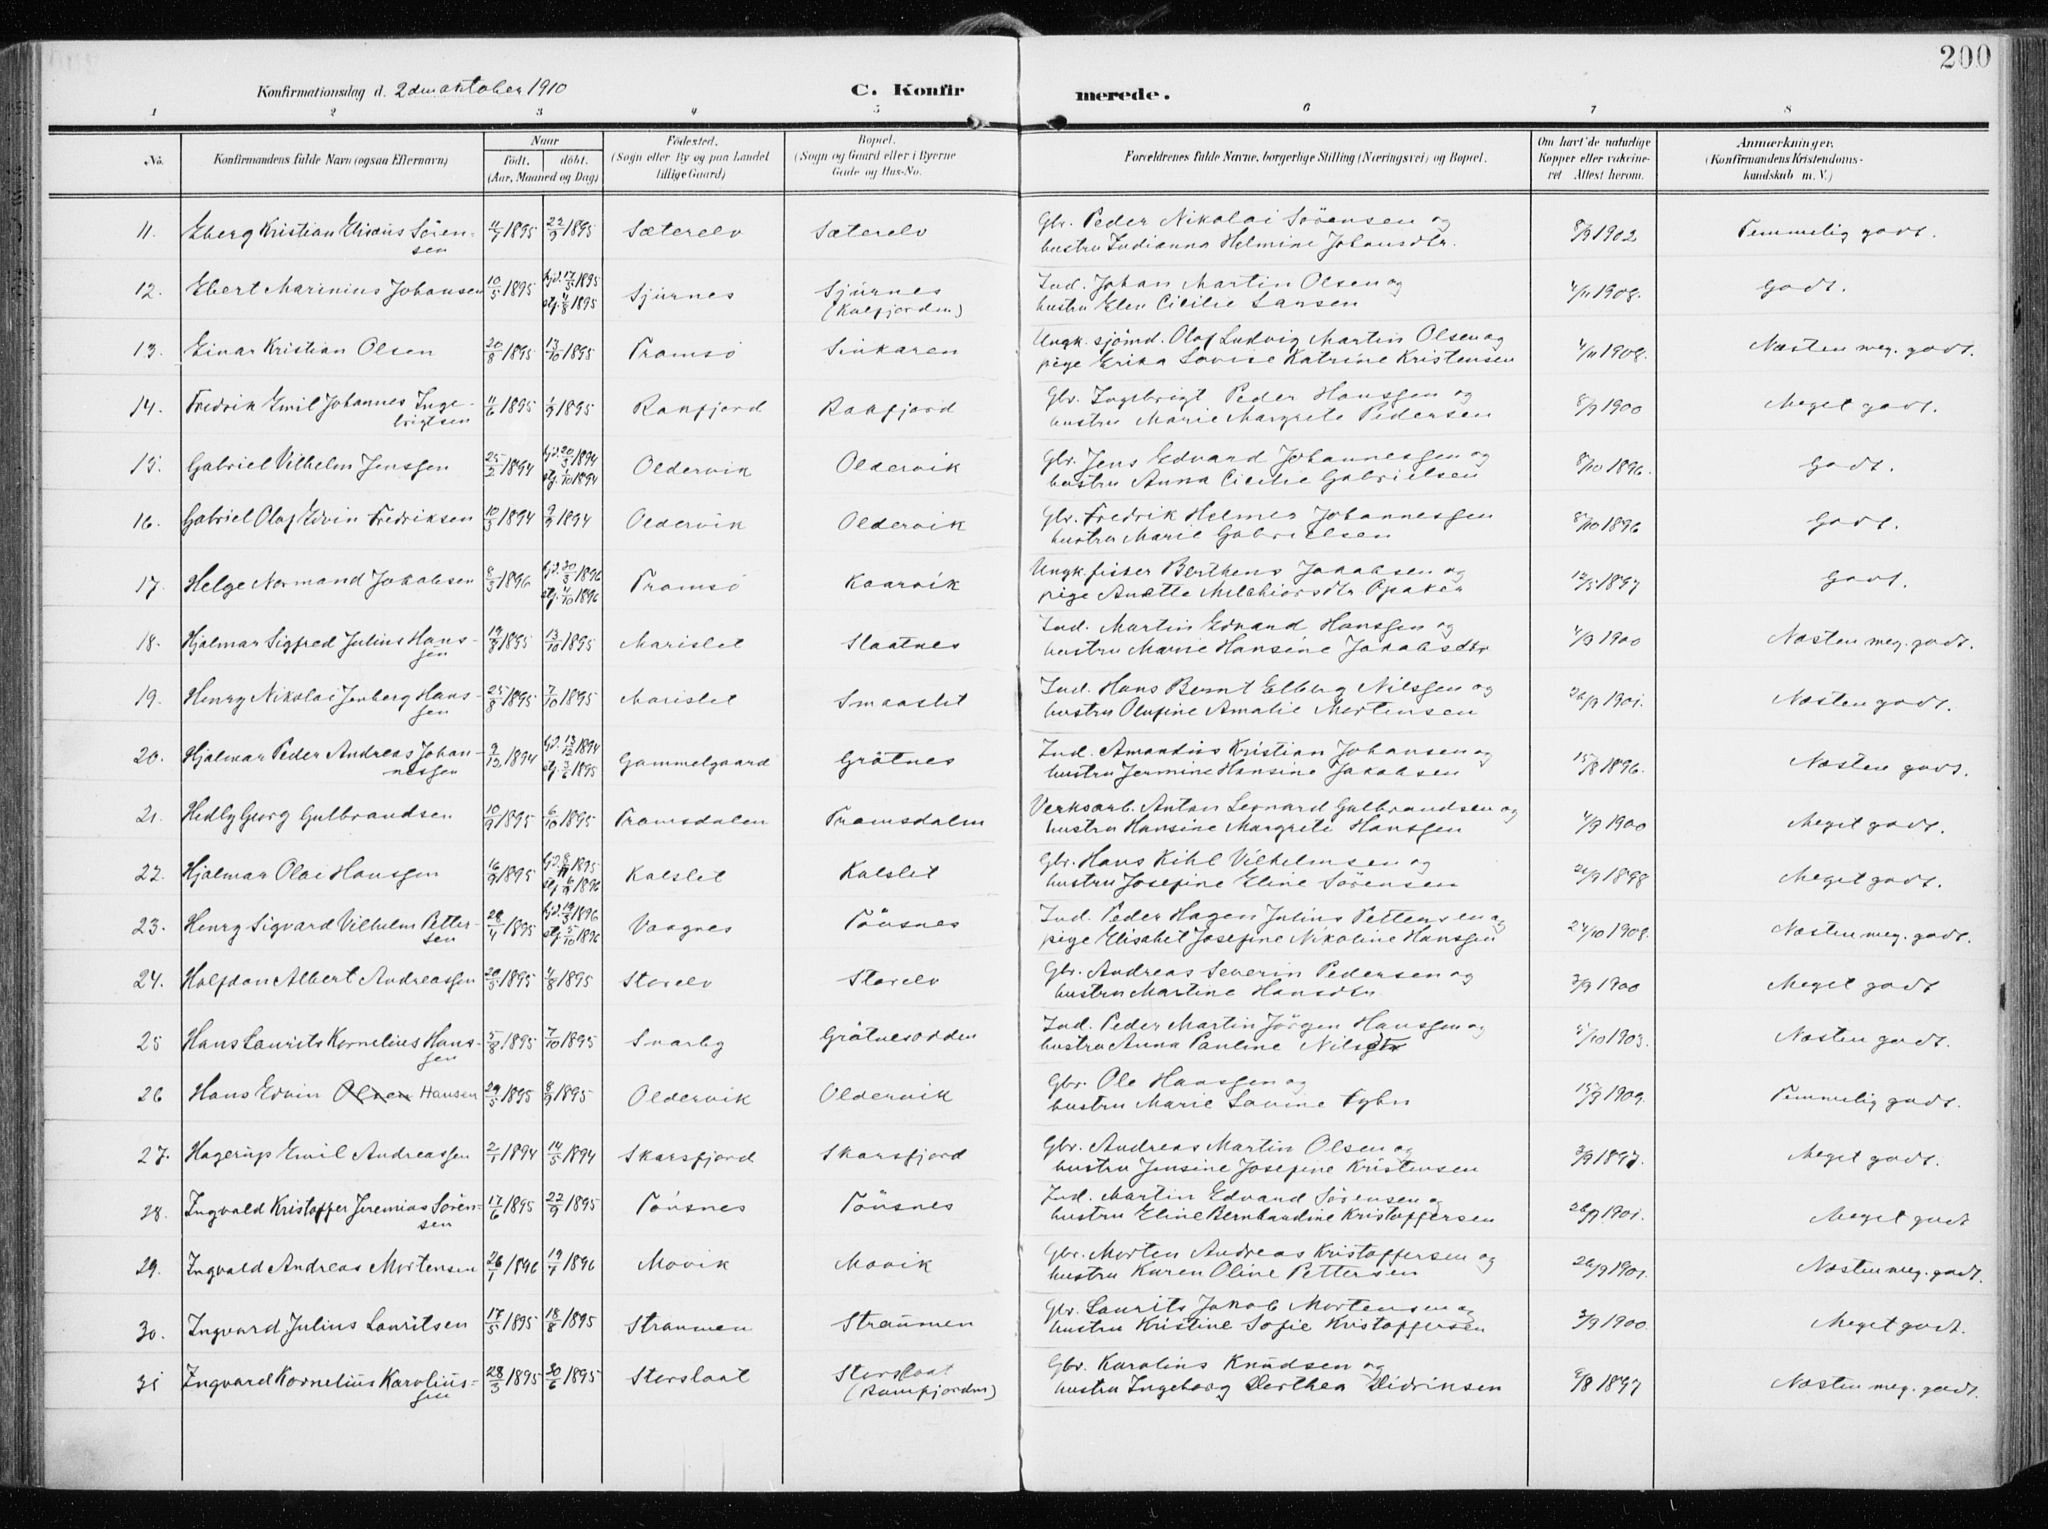 200
Konfirmationsdag d. 2den oktober 1910 C. Konfirmerede.
1 2 3 4 5 6 7 8
No. Konfirmandens fulde Navn (ogsaa Efternavn) Naar født. døbt. (Aar, Maaned og Dag) Fødested. (Sogn eller By og paa Landet tillige Gaard) Bopæl. (Sogn og Gaard eller i Byerne Gade og Hus-No. Forældrenes fulde Navne, borgerlige Stilling (Næringsvei) og Bopæl. Om havt de naturlige Kopper eller vakcineret Attest herom. Anmærkninger. (Konfirmandens Kristendomskundskab m. V.)
11. Eberg Kristian Elisæus Sørensen 11/7 1895 22/9 1895 Sæterelv Sæterelv Gbr. Peder Nikolai Sørensen og hustru Indianna Helmine Johansdtr. 8/9 1902 Temmelig godt.
12. Ebert Marinius Johansen 10/5 1895 hjd. 17/5 1895 stf. 4/8 1895 Sjurnes Sjurnes (Kalfjorden) Ind. Johan Martin Olsen og hustru Elen Cicilie Larsen 4/11 1908. Godt.
13. Einar Kristian Olsen 20/8 1895 13/10 1895 Tromsø Sinkaren Ungk. sjømd. Olaf Ludvig Martin Olsen og pige Erika Lovise Katrine Kristensen 4/11 1908. Næsten meg. godt.
14. Fredrik Emil Johannes Ingebrigtsen 11/6 1895 1/9 1895 Ramfjord Ramfjord Gbr. Ingebrigt Peder Hansgen og hustru Marie Margrete Pedersen 8/9 1900 Meget godt.
15. Gabriel Vilhelm Jensgen 25/2 1894 hjd. 20/3 1894 stf. 1/10 1894 Oldervik Oldervik Gbr. Jens Edvard Johannesgen og hustru Anna Cicilie Gabrielsen 8/10 1896. Godt.
16. Gabriel Olaf Edvin Fredriksen 10/3 1894 2/9 1894 Oldervik Oldervik Gbr. Fredrik Helmer Johannesgen hustru Marie Gabrielsen 8/10 1896 Godt.
17. Helge Normand Jakobsen 8/3 1896 hjd. 20/3 1896 stf. 4/10 1896 Tromsø Kaarvik Ungk fisker Berthens Jakobsen og pige Anette Melchiorsdtr Opaker 12/5 1897 Godt.
18. Hjalmar Sigfred Julius Hansgen 19/8 1895 13/10 1895 Marislet Slaatnes Ind. Martin Edvard Hansgen og hustru Marie Hansine Jakobsdtr 4/9 1900 Næsten meg. godt.
19. Henry Nikolai Jenberg Hansgen 25/8 1895 7/10 1895 Marislet Smaaslet Ind. Hans Bernt Elberg Nilsgen og hustru Olufine Amalie Mortensen 26/9 1901. Næsten godt.
20. Hjalmar Peder Andreas Johannesgen 9/12 1894 Gd. 13/12 1894 stf. 3/6 1895 Gammelgaard Grøtnes Ind. Amandus Kristian Johansen og hustru Jermine Hansine Jakobsen 15/8 1896. Næsten godt.
21. Hedly Georg Gulbrandsen 10/9 1895 6/10 1895 Tromsdalen Tromsdalen Verksarb. Anton Leonard Gulbrandsen og hustru Hansine Margrete Hansgen 4/9 1900 Meget godt.
22. Hjalmar Olai Hansgen 16/9 1895 hjd. 8/11 1895 stf. 6/9 1896 Kalslet Kalslet Gbr. Hans Kihl Vilhelmsen og hustru Josefine Eline Sørensen 21/9 1898 Meget godt.
23. Henry Sigvard Vilhelm Pettersen 28/4 1895 hjd. 19/3 1896 stf. 5/10 1896 Vaagnes Tønsnes Ind. Peder Hagen Julius Pettersen og pige Elisabet Josefine Nikoline Hansgen 27/10 1908. Næsten meg. godt.
24. Halfdan Albert Andreassen 20/5 1895 4/8 1895 Storelv Storelv Gbr. Andreas Severin Pedersen og hustru Martine Hansdtr. 3/9 1900 Meget godt
25 Hans Laurits Kornelius Hansgen 5/8 1895 7/10 1895 Svarby Grøtnesodden Ind. Peder Martin Jørgen Hansgen og hustru Anna Pauline Nilsdtr 5/10 1903. Næsten godt.
26 Hans Edvin Olsen Hansen 29/5 1895 8/9 1895 Oldervik Oldervik Gbr. Ole Hansgen og hustru Marie Lovine Fyhn 15/9 1909. Temmelig godt.
27. Hagerup Emil Andreassen 2/1 1894 14/5 1894 Skarsfjord Skarsfjord Gbr. Andreas Martin Olsen og hustru Jensine Josefine Kristensen 3/9 1897. Meget godt.
28. Ingvald Kristoffer Jeremias Sørensen 17/6 1895 22/9 1895 Tønsnes Tønsnes Ind. Martin Edvard Sørensen og hustru Eline Bernhardine Kristoffersen 26/9 1901. Meget godt
29. Ingvald Andreas Mortensen 26/1 1896 19/7 1896 Movik Movik Gbr. Morten Andreas Kristoffersen og hustru Karen Oline Pettersen 26/9 1901. Næsten meg. godt.
30. Ingvard Julius Lauritsen 17/5 1895 18/8 1895 Straumen Straumen Gbr. Laurits Jakob Mortensen og hustru Kristine Sofie Kristoffersen 3/9 1900. Meget godt.
31 Ingvard Kornelius Karoliussen 28/3 1895 30/6 1895 Storslaat Storslaat (Ramfjorden) Gbr. Karolius Knudsen og hustru Ingeborg Derthea Didriksen 9/8 1897 Næsten meg. godt.